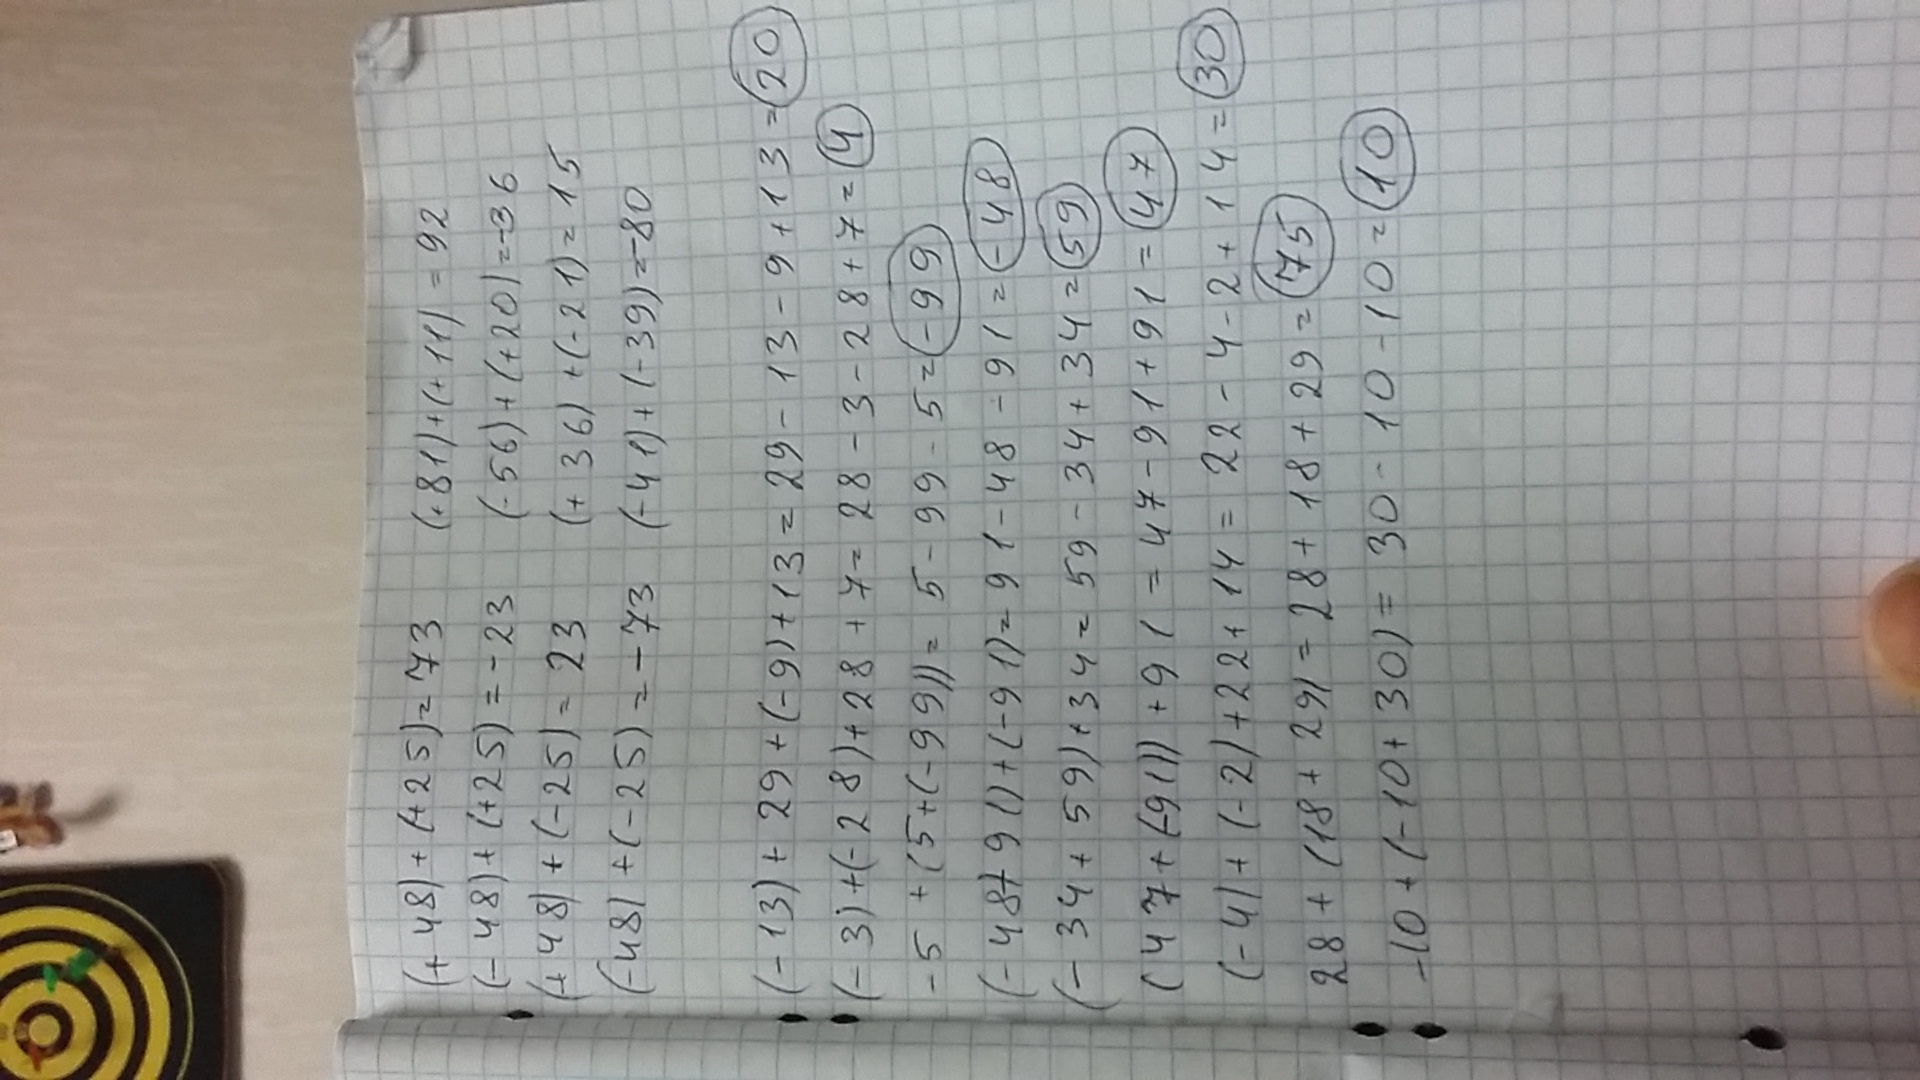 (+48)+(+25)=73 (+81)+(+11)=92
(-48)+(+25)=-23 (-56)+(+20)=-36
(+48)+(-25)=23 (+36)+(-21)=15
(-48)+(-25)=-73 (-41)+(-39)=-80
(-13)+29+(-9)+13=29-13-9+13=20
(-3)+(-28)+28+7=28-3-28+7=4
-5+(5+(-99))=5-99-5=-99
(-48+91)+(-91)=91-48-91=-48
(-34+59)+34=59-34+34=59
(47+(-91))+91=47-91+91=47
(-4)+(-2)+22+14=22-4-2+14=30
28+(18+29)=28+18+29=75
-10+(-10+30)=30-10-10=10